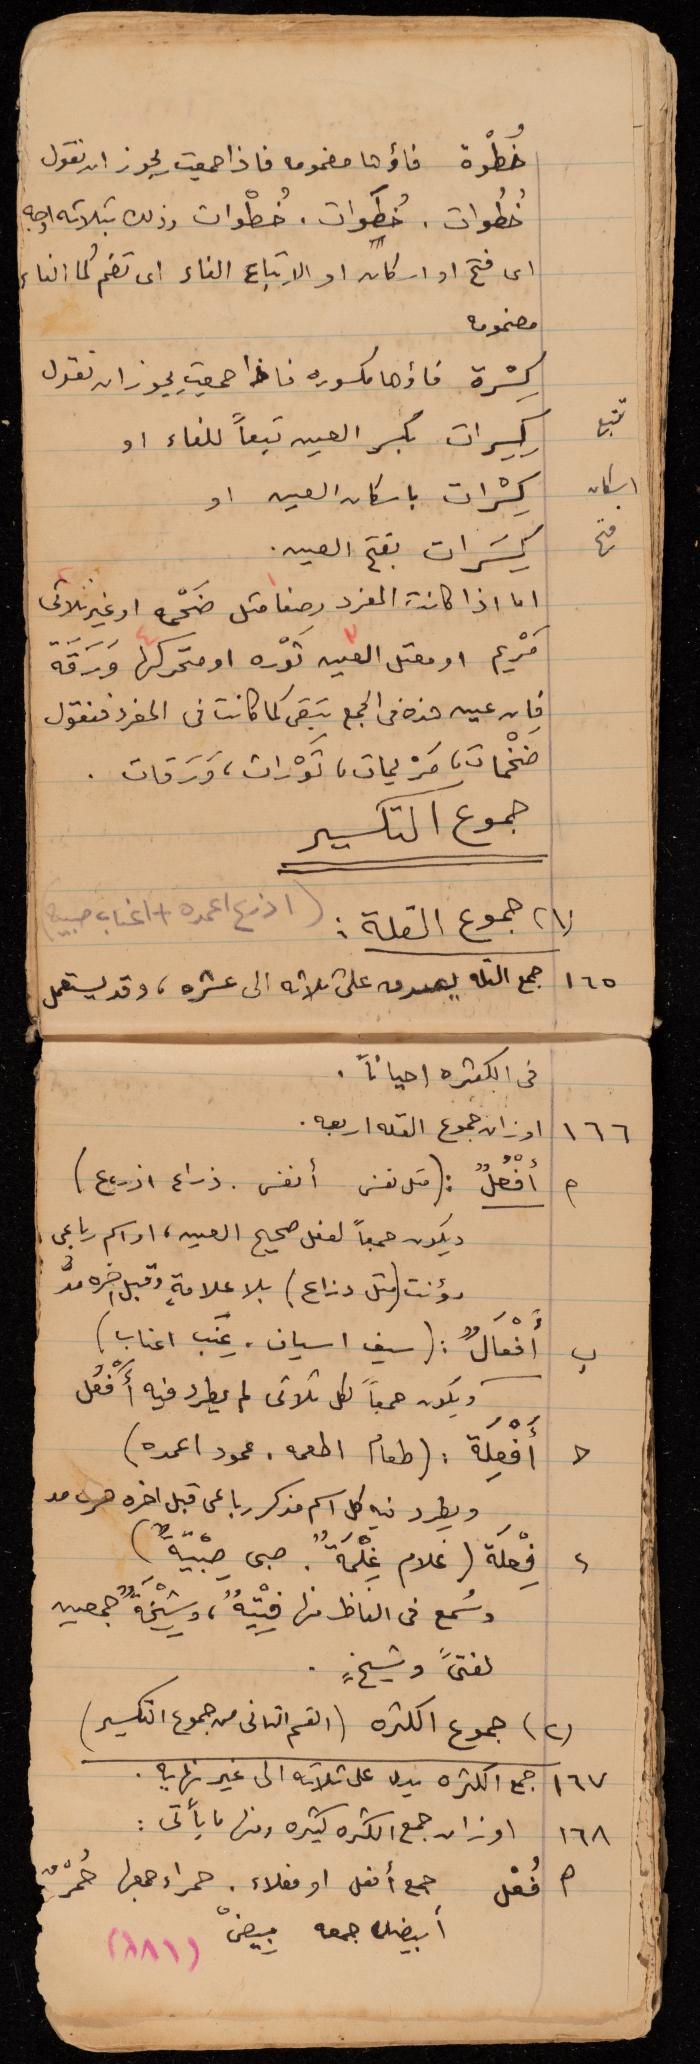 خُطْوة فاؤها مضمومه فاذا جمعت يجوز ان نقول
خُطُوات . خُطَوات . خُطْوات وذلك بثلاثه اوجه
اى فتح او اسكان او الاتباع الفاء اى تضم كما الفاء
مضمومه
كِسْرة فاؤها مكسوره فاذا جمعت يجوز ان نقول
تتبع كِسِرات بكسر العين تبعاً للفاء او
اسكان كِسْرات باسكان العين او
فتح كِسَرات بفتح العين .
اما اذا كانت المفرد وصفا مثل ضَخْمه او غير ثلاثى
مَرْيم او معتل العين ثَوْره او متحركها وَرَقَة
فان عين هذه فى الجمع تبقى كما كانت فى المفرد فنقول
ضَخْمات، مَرْيمات، ثَوْرات، وَرَقات .
جموع التكسير
(١) جموع القلة : (اذرع اعمده + اعناب صبية)
١٦٥ جمع القله يصدق على ثلاثه الى عشره، وقد يستعمل
فى الكثره احياناً .
١٦٦ اوزان جموع القله اربعه .
م أَفْعُلٌ : (مثل نفس أنفس . ذراع اذرع)
ويكون جمعاً لفعل صحيح العين، او اسم رباعى
مؤنث (مثل ذراع) بلا علامةٍ وقبل اخره مدٌ
ب أَفْعَالٌ : (سيف اسياف . عِنَب اعناب)
ويكون جمعاً لكل ثلاثى لم يطرد فيه أَفْعُل
ح أَفْعِلَة : (طعام اطعمه . عمود اعمده)
ويطرد فيه كل اسم مذكر رباعى قبل اخره حرف مد
د فِعْلَة (غلام غِلْمَةٌ . صبى صِبْيَةٌ)
وسُمع فى الفاظ منها فِتْيَةٌ، وشِيْخَةٌ جمعين
لفتىً وشيخٍ .
(٢) جموع الكثره (القسم الثانى من جموع التكسير)
١٦٧ جمع الكثره يدل على ثلاثه الى غير نهايه .
١٦٨ اوزان جمع الكثره كثيره ومنها ما يأتى :
م فُعْل جمع أفعل او فعلاء . حمراء جمعها حُمْرٌ
أبيض جمعه بِيضٌ
(١٨٨)